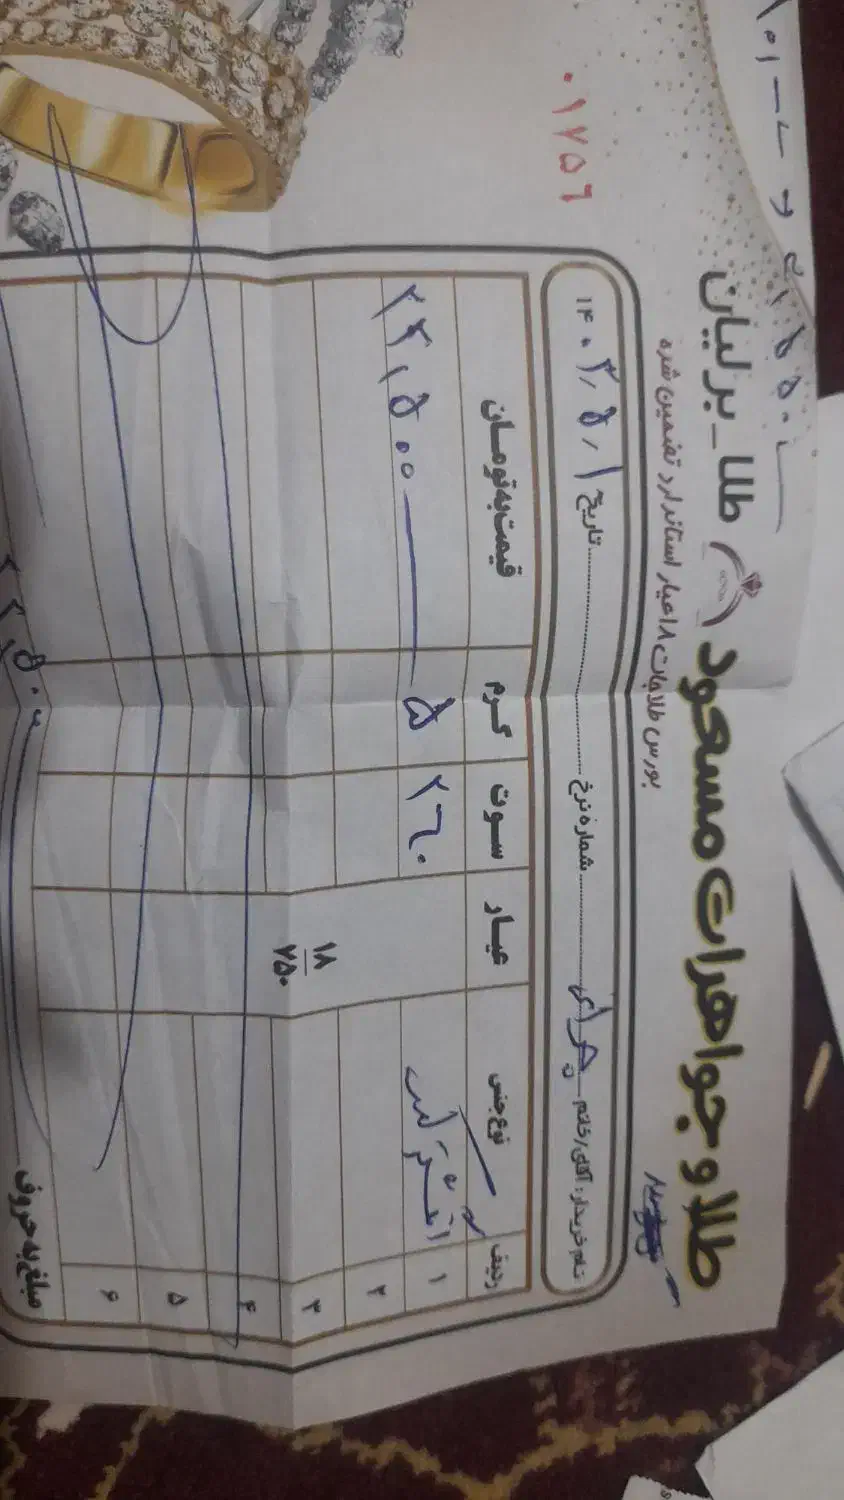 طلا و جواهرات مسعود
طلا _ برلیان
بورس طلاجات ۱۸ عیار استاندارد تضمین شده
۰۱۷۵۶
نام خریدار: آقای/خانم
شماره نرخ
تاریخ ۱۴۰۳٫۵٫۱
ردیف نوع جنس عیار سوت گرم قیمت به تومان
۱ انگشتر ۲۶۰ ۵ ۲۲٫۵۰۰
۲
۳ ۱۸
۷۵۰
۴
۵
۶
مبلغ به حروف